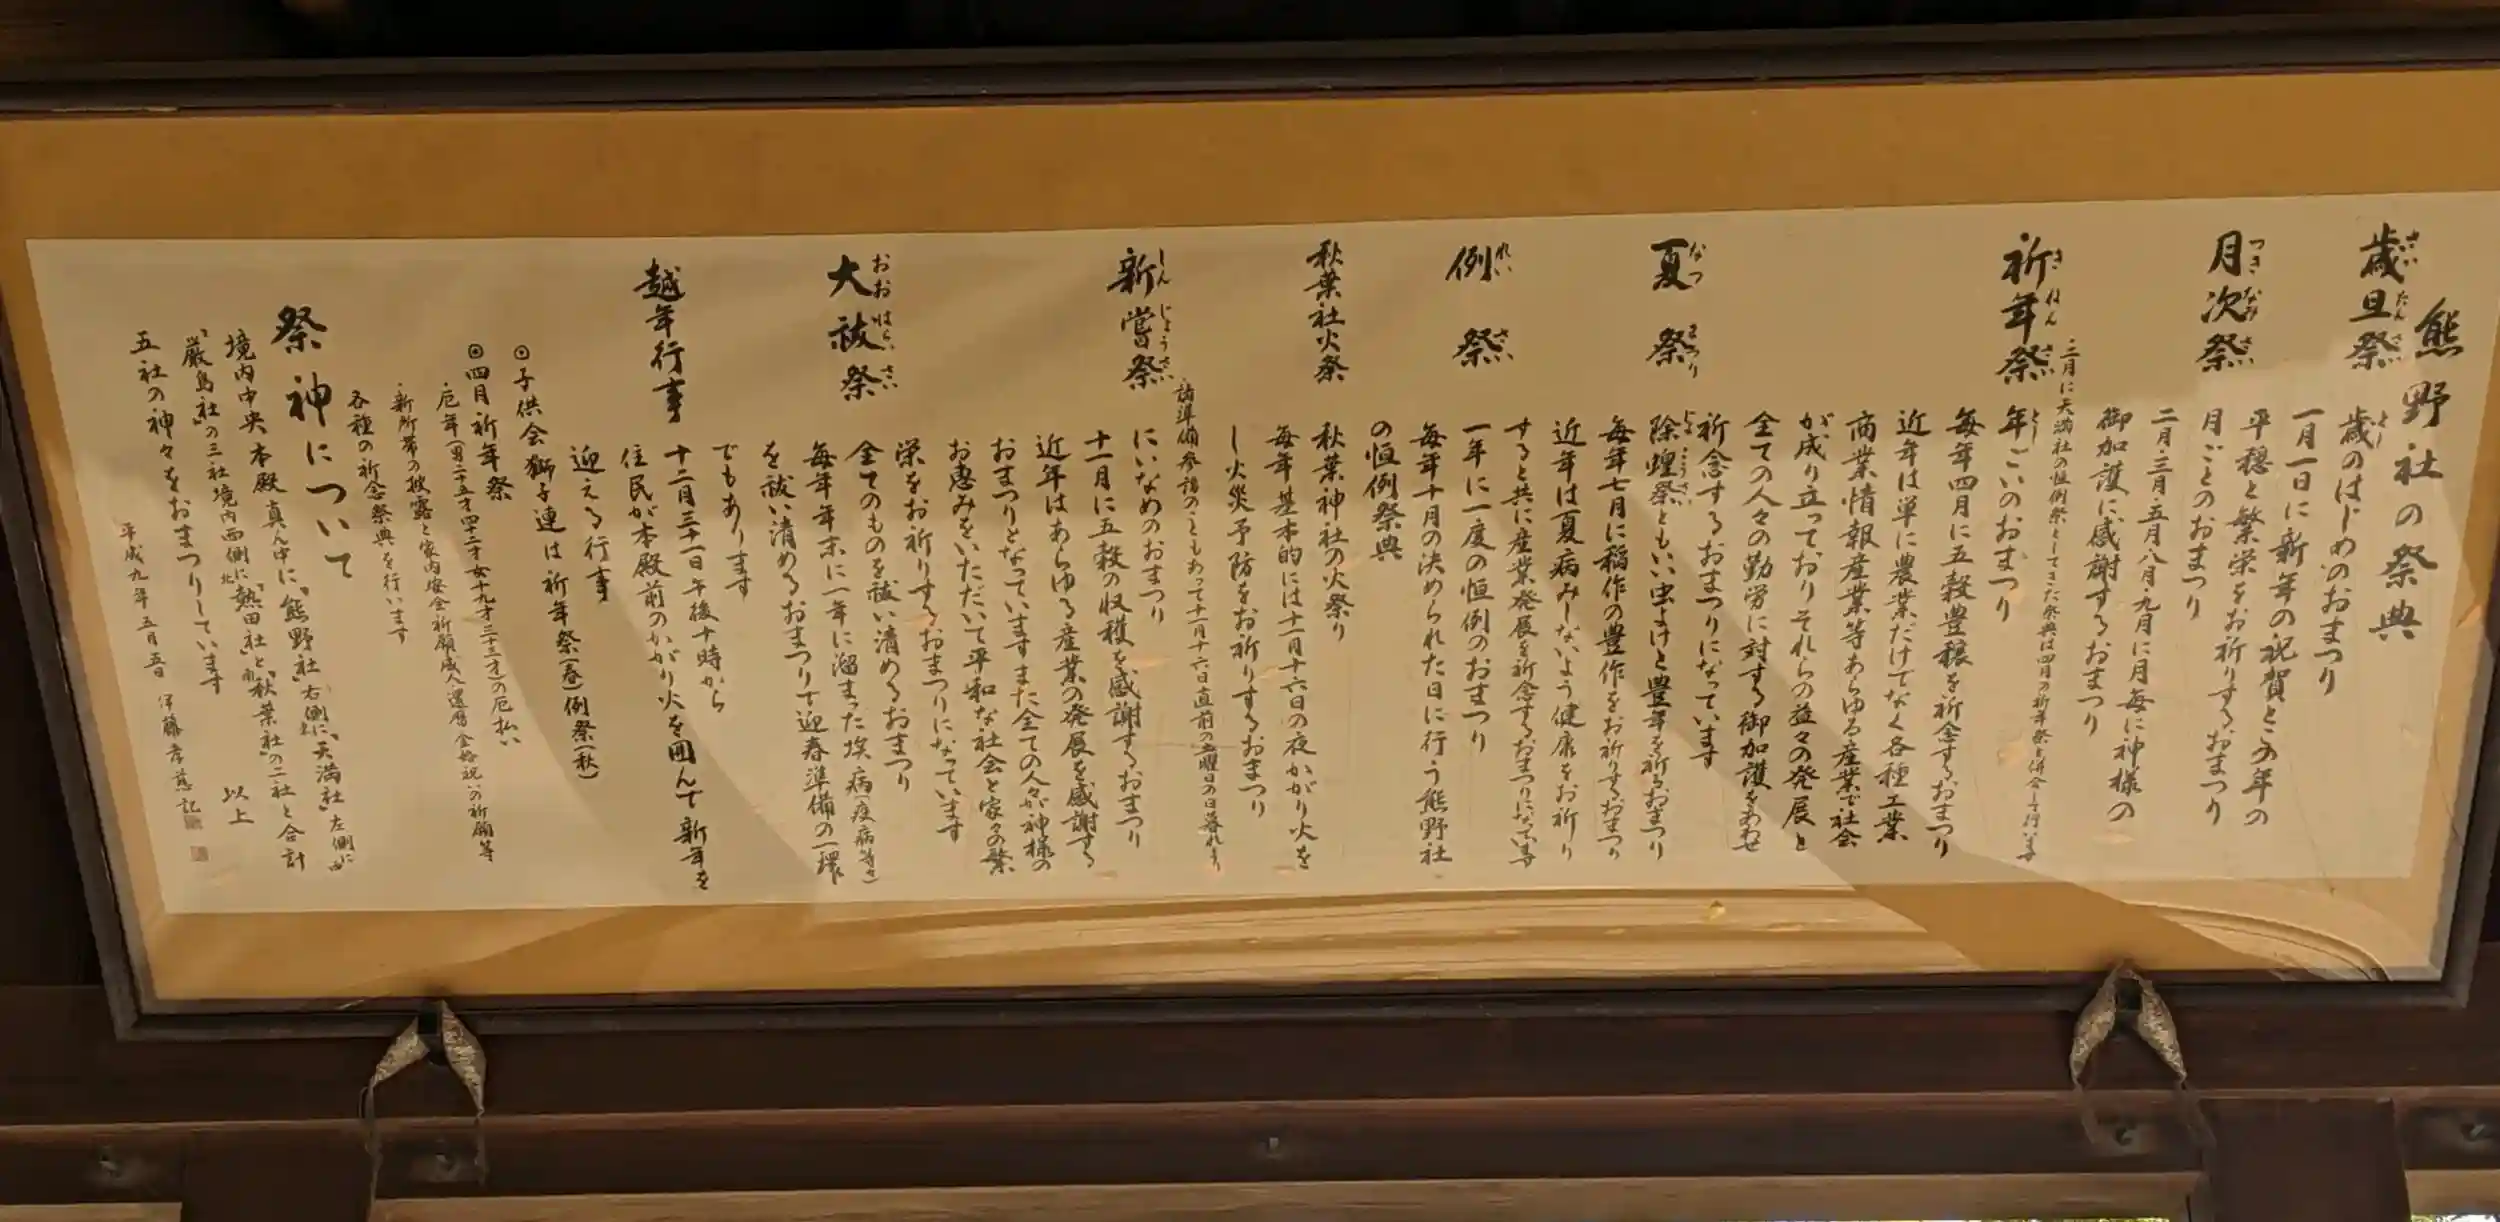 熊野社の祭典
歳旦祭
さいたんさい
歳のはじめのおまつり
とし
一月一日に新年の祝賀とこの年の
平穏と繁栄をお祈りするおまつり
月次祭
つきなみさい
月ごとのおまつり
二月・三月・五月・八月・九月に月毎に神様の
御加護に感謝するおまつり
・三月に天満社の恒例祭としてきた祭典は四月の祈年祭と併合して行います
祈年祭
きねんさい
年ごいのおまつり
とし
毎年四月に五穀豊穣を祈念するおまつり
近年は単に農業だけでなく各種工業
商業情報産業等あらゆる産業で社会
が成り立っておりそれらの益々の発展と
全ての人々の勤労に対する御加護をあわせ
祈念するおまつりになっています
夏祭
なつまつり
除蝗祭ともいい虫よけと豊年を祈るおまつり
じょこうさい
毎年七月に稲作の豊作をお祈りするおまつり
近年は夏病みしないよう健康をお祈り
すると共に産業発展を祈念するおまつりになっています
例祭
れいさい
一年に一度の恒例のおまつり
毎年十月の決められた日に行う熊野社
の恒例祭典
秋葉社火祭
秋葉神社の火祭り
毎年基本的には十一月十六日の夜かがり火を
し火災予防をお祈りするおまつり
・諸準備参詣のこともあって十一月十六日直前の土曜日の日暮れより
新嘗祭
しんじょうさい
にいなめのおまつり
十一月に五穀の収穫を感謝するおまつり
近年はあらゆる産業の発展を感謝する
おまつりとなっていますまた全ての人々が神様の
お恵みをいただいて平和な社会と家々の繁
栄をお祈りするおまつりになっています
大祓祭
おおはらいさい
全てのものを祓い清めるおまつり
毎年年末に一年に溜まった埃病(疫病等々)
を祓い清めるおまつりで迎春準備の一環
でもあります
越年行事
十二月三十一日午後十時から
住民が本殿前のかがり火を囲んで新年を
迎える行事
⊙子供会獅子連は祈年祭(春)例祭(秋)
⊙四月祈年祭
・厄年(男二十五才四十二才女十九才三十三才)の厄払い
・新所帯の披露と家内安全祈願成人還暦金婚祝いの祈願等
各種の祈念祭典を行います
祭神について
境内中央本殿真ん中に〝熊野社〟右側に〝天満社〟左側が
〝厳島社〟の三社境内西側に〝熱田社〟と〝秋葉社〟の二社と合計
五社の神々をおまつりしています
以上
平成九年五月五日 伊藤孝慈記